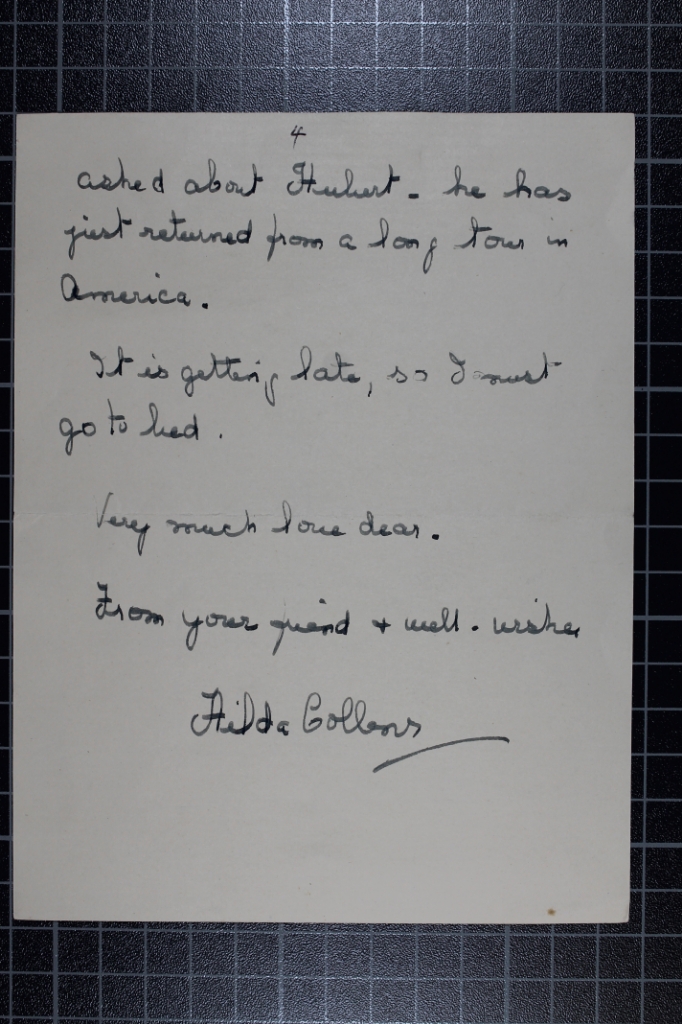 4
asked about Hubert - he has
just returned from a long tour in
America.
It is getting late, so I must
go to bed.
Very much love dear.
From your friend + well-wisher
Hilda Collens